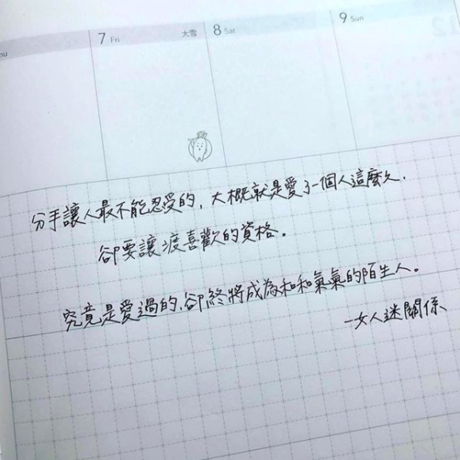 7 Fri 大雪 8 Sat 9 Sun
分手讓人最不能忍受的，大概就是愛了一個人這麼久，
卻要讓渡喜歡的資格。
究竟是愛過的，卻終將成為和和氣氣的陌生人。
—女人迷關係